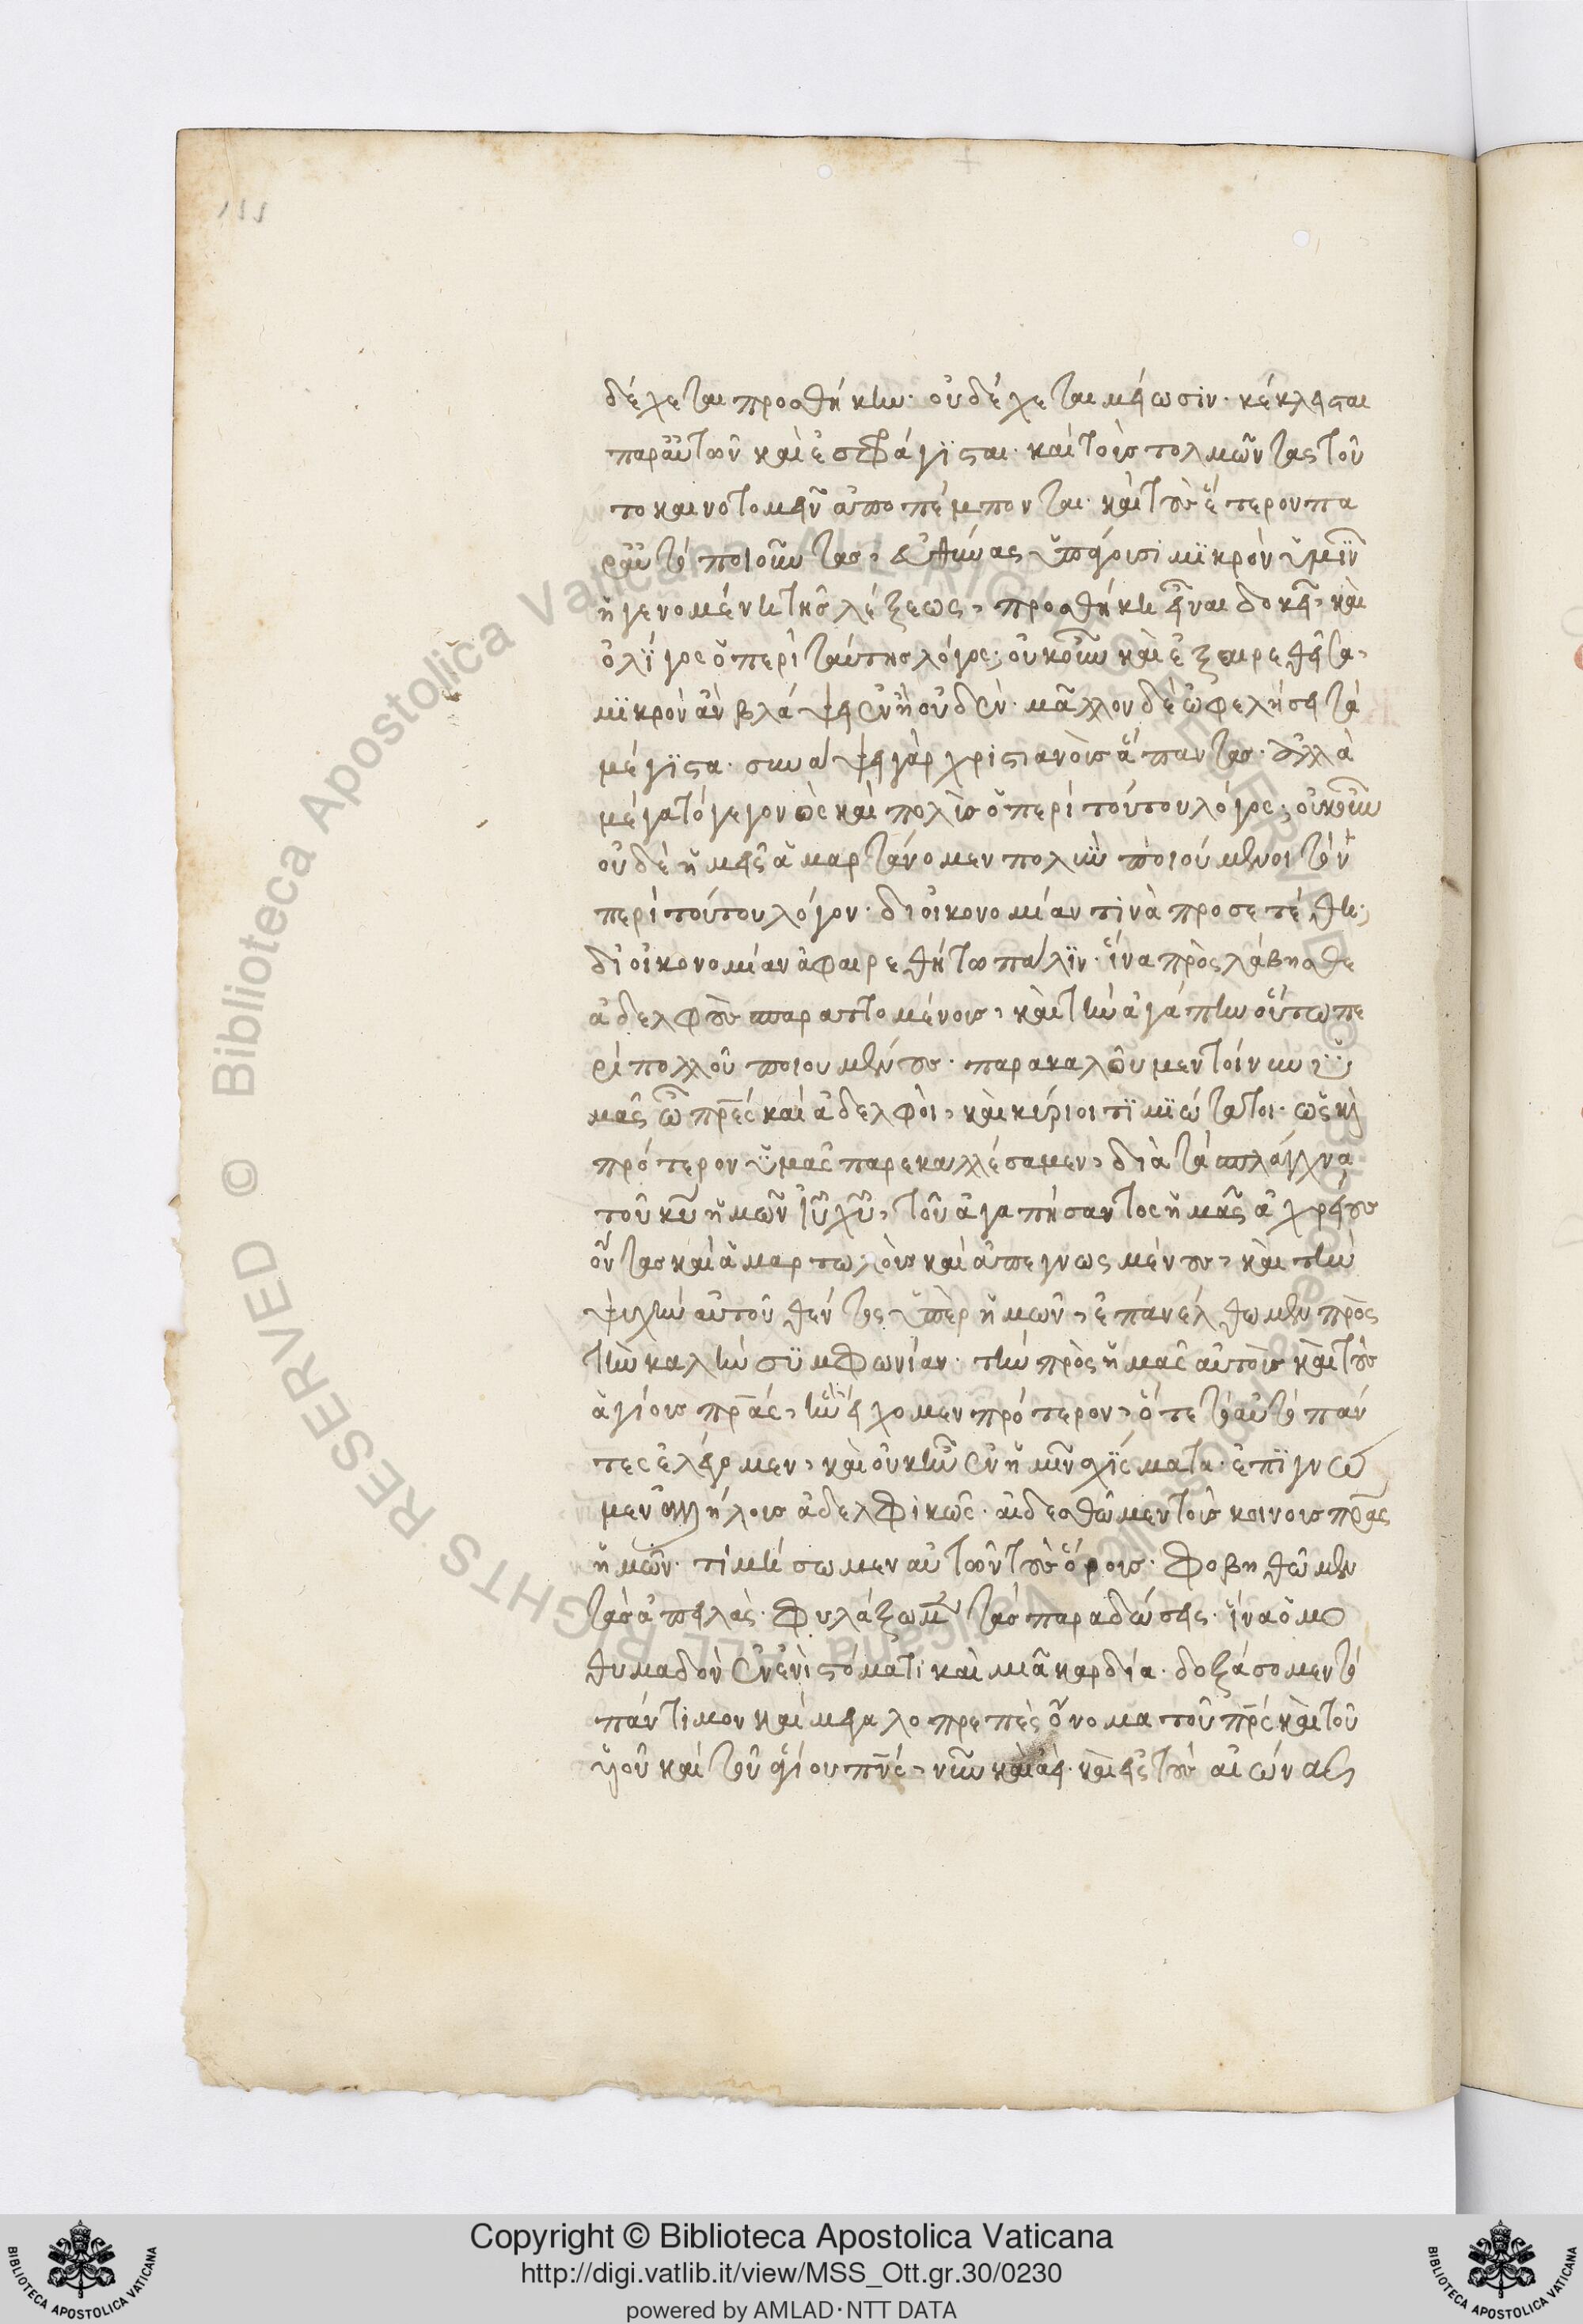 δέχεται προσθήκην· οὐ δέχεται μείωσιν· κέκλεισται
παρ' αὐτῶν καὶ ἐσφάγισται· καὶ τοὺς τολμῶντας τοῦ
το καινοτομεῖν ἀποπέμπονται· καὶ τοὺς ἕτερον πα
ρ' αὐτὸ ποιοῦντας, εὐθύνας ὑπάγουσι μϊκρὸν ὑμῖν
ἡ γενομένη τῆς λέξεως, προσθήκη εἶναι δοκεῖ, καὶ
ὀλίγος ὁ περὶ ταύτης λόγος; οὐκοῦν καὶ ἐξαιρεθεῖσα,
μϊκρὸν ἂν βλάψειεν ἢ οὐδέν· μᾶλλον δὲ ὠφελήσει τὰ
μέγϊστα· συνάψει γὰρ χριστιανοὺς ἅπαντας· ἀλλὰ
μέγα τὸ γεγονὸς καὶ πολὺς ὁ περὶ τούτου λόγος; οὐκοῦν
οὐδὲ ἡμεῖς ἁμαρτάνομεν πολὺν ποιούμενοι τὸν
περὶ τούτου λόγον· δι' οἰκονομίαν τινὰ προσετέθη;
δι' οἰκονομίαν ἀφαιρεθήτω πάλϊν· ἵνα προσλάβησθε
ἀδελφοὺς σπαραττομένους, καὶ τὴν ἀγάπην οὕτω πε
ρὶ πολλοῦ ποιουμένους· παρακαλοῦμεν τοίνυν ὑ
μᾶς ὦ πρες καὶ ἀδελφοὶ, καὶ κύριοι τϊμϊώτατοι· ὡς καὶ
πρότερον ὑμᾶς παρεκαλλέσαμεν, διὰ τὰ σπλάγχνα
τοῦ κυ ἡμῶν ιυ χυ, τοῦ ἀγαπήσαντος ἡμᾶς ἀχρείους
ὄντας καὶ ἁμαρτωλοὺς καὶ ἀπεγνωσμένους, καὶ τὴν
ψυχὴν αὐτοῦ θέντος ὑπὲρ ἡμῶν, ἐπανέλθωμεν πρὸς
τὴν καλὴν συμφωνίαν· τὴν πρὸς ἡμᾶς αὐτοὺς καὶ τοὺς
ἁγίους πρας, ἣν εἴχομεν πρότερον, ὅτε τὸ αὐτὸ πάν
τες ἐλέγομεν, καὶ οὐκ ἦν ἐν ἡμῖν σχίσματα· ἐπϊγνῶ
μεν ἀλλήλους ἀδελφικῶς· αἰδεσθῶμεν τοὺς κοινοὺς πρας
ἡμῶν· τιμήσωμεν αὐτῶν τοὺς ὅρους· φοβηθῶμεν
τὰς ἀπειλὰς· φυλάξωμεν τὰς παραδώσεις· ἵνα ὁμο
θυμαδὸν ἐν ἑνὶ στόματι καὶ μιᾶ καρδία· δοξάσομεν τὸ
πάντιμον καὶ μεγαλοπρεπὲς ὄνομα τοῦ πρς καὶ τοῦ
υἱοῦ καὶ τοῦ ἁγίου πνς, νῦν καὶ ἀεὶ καὶ εἰς τοὺς αἰώνας
Copyright © Biblioteca Apostolica Vaticana
http://digi.vatlib.it/view/MSS_Ott.gr.30/0230
powered by AMLAD·NTT DATA